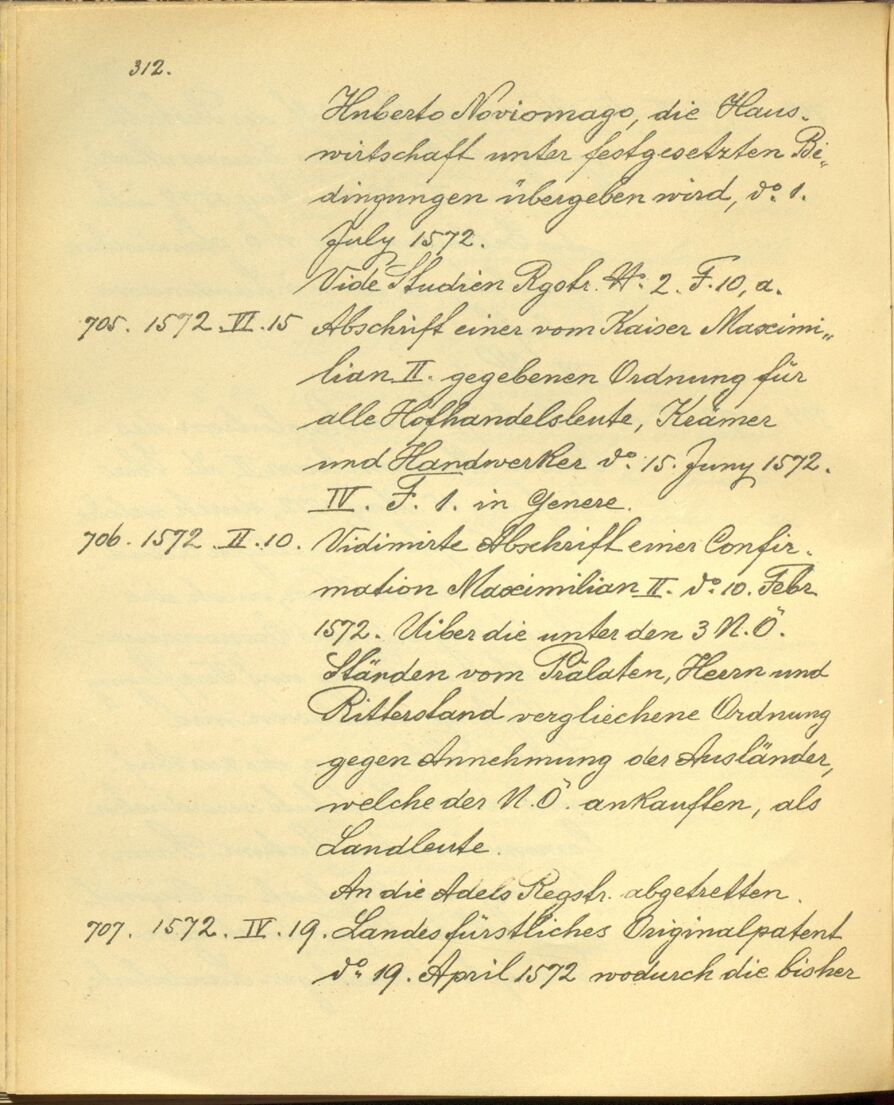 312.
Huberto Noviomago, die Haus-
wirtschaft unter festgesetzten Be„
dingungen übergeben wird, do. 1.
July 1572.
Vide Studien Rgstr. No. 2. F. 10, a.
705. 1572. VI. 15 Abschrift einer vom Kaiser Maximi„
lian II. gegebenen Ordnung für
alle Hofhandelsleute, Krämer
und Handwerker do. 15. Juny 1572.
IV. F. 1. in Genere.
706. 1572. II. 10. Vidimirte Abschrift einer Confir-
mation Maximilian II. do. 10. Febr
1572. Uiber die unter den 3 N. Ö.
Ständen vom Prälaten, Herrn und
Ritterstand vergliechene Ordnung
gegen Annehmung der Ausländer,
welche der N. Ö. ankauften, als
Landleute.
An die Adels Regstr. abgetretten.
707. 1572. IV. 19. Landesfürstliches Originalpatent
do. 19. April 1572 wodurch die bisher